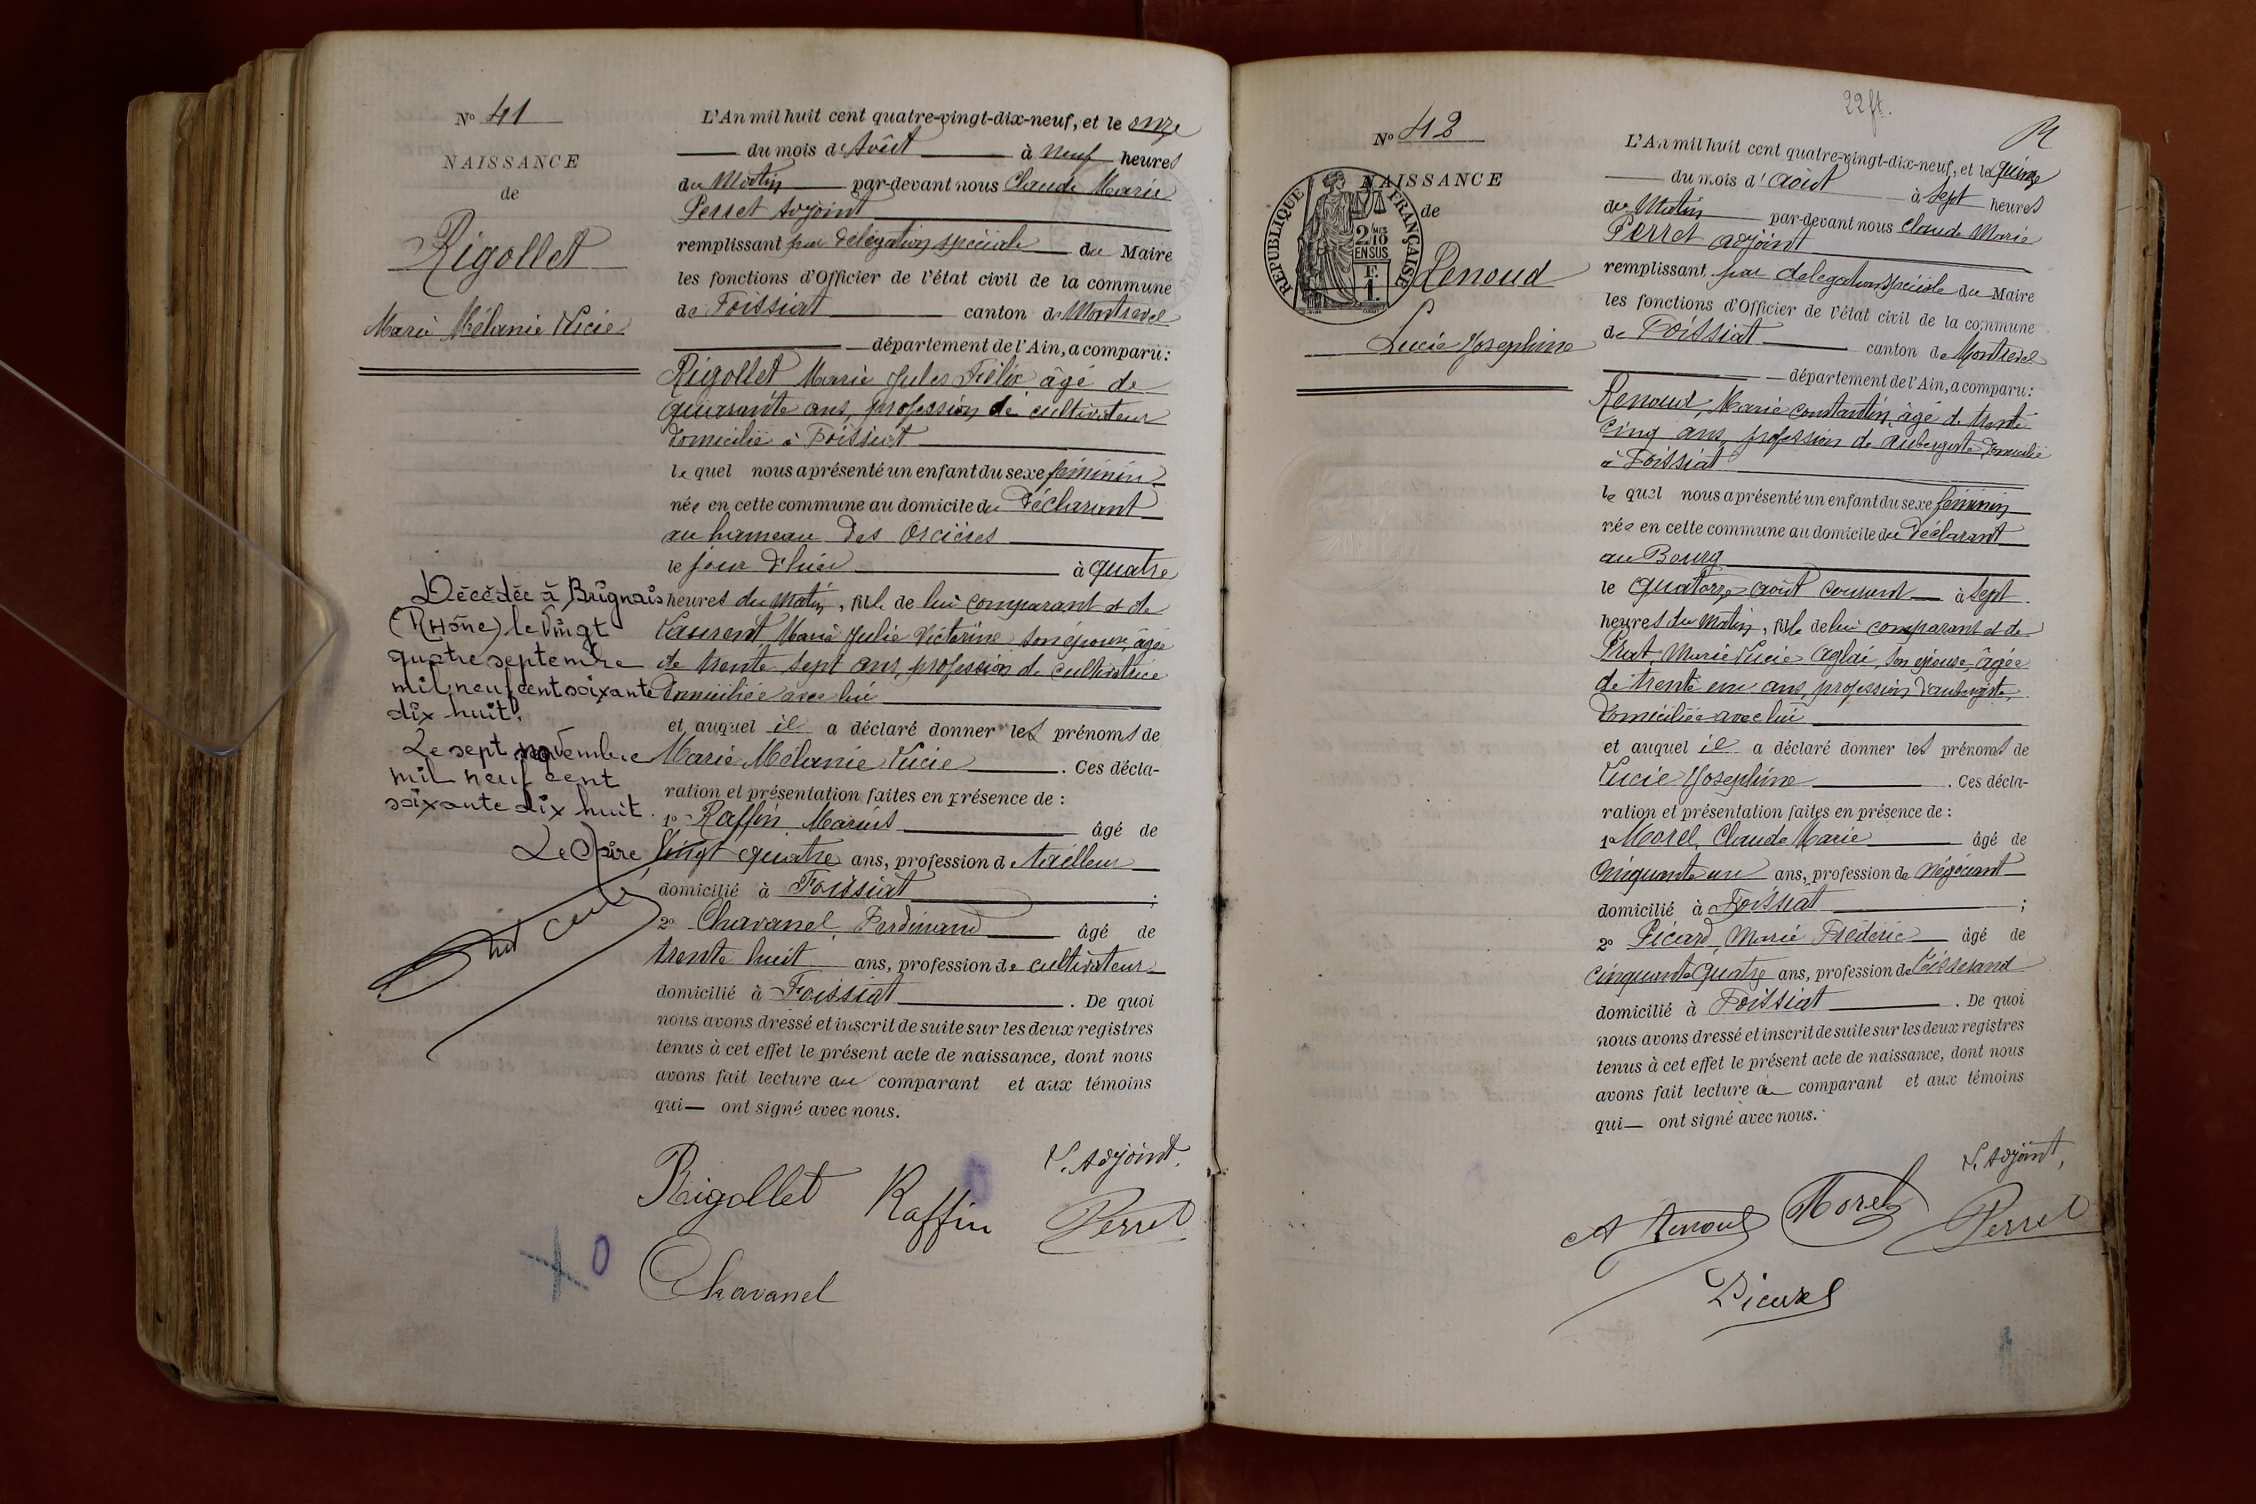 N° 41
NAISSANCE
de
Rigollet
Marie Mélanie Lucie
Décédée à Brignais
(Rhône) le vingt
quatre septembre
mil neuf cent soixante
dix huit.
Le sept novembre
mil neuf cent
soixante dix huit.
Le Maire
L'An mil huit cent quatre-vingt-dix-neuf, et le onze
du mois d'Août à neuf heures
du Matin par-devant nous Claude Marie
Perret Adjoint
remplissant par délégation spéciale du Maire
les fonctions d'Officier de l'état civil de la commune
de Foissiat canton de Montrevel
département de l'Ain, a comparu :
Rigollet Marie Jules Félix âgé de
quarante ans, profession de cultivateur
domicilié à Foissiat
le quel nous a présenté un enfant du sexe féminin
née en cette commune au domicile du Déclarant
au hameau des Orcières
le jour d'hier à quatre
heures du matin, fille de lui comparant et de
Laurent Marie Julie Victorine son épouse, âgée
de trente sept ans, profession de cultivatrice
domiciliée avec lui
et auquel il a déclaré donner les prénoms de
Marie Mélanie Lucie . Ces décla-
ration et présentation faites en présence de :
1° Raffin Marius âgé de
vingt quatre ans, profession de tailleur
domicilié à Foissiat ;
2° Chavanel Ferdinand âgé de
trente huit ans, profession de cultivateur
domicilié à Foissiat . De quoi
nous avons dressé et inscrit de suite sur les deux registres
tenus à cet effet le présent acte de naissance, dont nous
avons fait lecture au comparant et aux témoins
qui — ont signé avec nous.
L'Adjoint,
Rigollet Raffin Perret
Chavanel
22 ft.
N° 42
NAISSANCE
de
RÉPUBLIQUE FRANÇAISE
2/10 EN SUS
F.
1.
Renoud
Lucie Josephine
L'An mil huit cent quatre-vingt-dix-neuf, et le quinze
du mois d'août à sept heures
du Matin par-devant nous Claude Marie
Perret adjoint
remplissant par délégation spéciale du Maire
les fonctions d'Officier de l'état civil de la commune
de Foissiat canton de Montrevel
département de l'Ain, a comparu :
Renoud, Marie Constantin, âgé de trente
cinq ans, profession de aubergiste, domicilié
à Foissiat
le quel nous a présenté un enfant du sexe féminin
née en cette commune au domicile du Déclarant
au Bourg
le quatorze août courant à sept
heures du Matin, fille de lui comparant et de
Prat, Marie Lucie Aglaé, son épouse, âgée
de trente un ans, profession d'aubergiste,
domiciliée avec lui
et auquel il a déclaré donner les prénoms de
Lucie Josephine . Ces décla-
ration et présentation faites en présence de :
1° Morel, Claude Marie âgé de
cinquante un ans, profession de négociant
domicilié à Foissiat ;
2° Picard, Marie Frédéric âgé de
cinquante quatre ans, profession de tisserand
domicilié à Foissiat . De quoi
nous avons dressé et inscrit de suite sur les deux registres
tenus à cet effet le présent acte de naissance, dont nous
avons fait lecture au comparant et aux témoins
qui — ont signé avec nous.
L'Adjoint,
Renoud Morel Perret
Picard